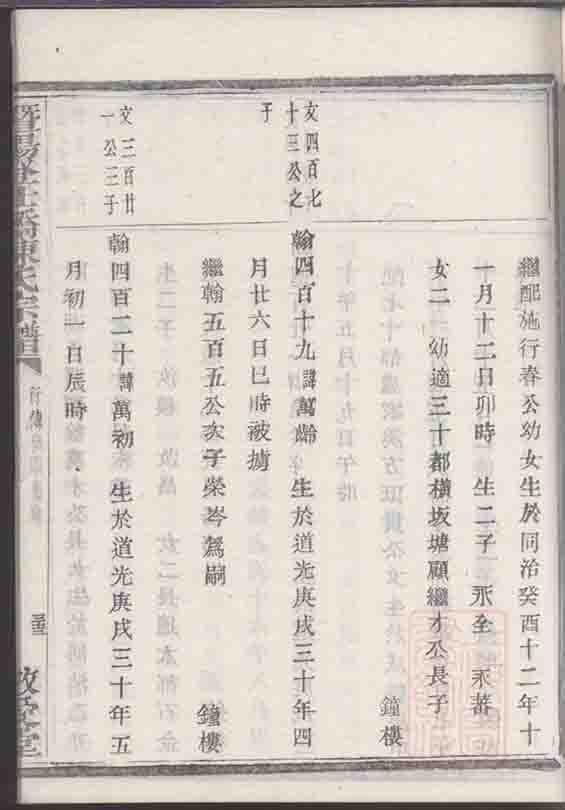 繼配施行春公幼女生於同治癸酉十二年十
一月十二日卯時　生二子　永全　永蕃
女二　幼適三十都橫坂塘顧繼才公長子
鐘樓
文四百七
十三公之
子
翰四百十九諱萬齡　生於道光庚戌三十年四
月廿六日巳時被擄
繼翰五百五公次子榮岑為嗣
鐘樓
文三百廿
一公三子
翰四百二十諱萬初　生於道光庚戌三十年五
月初一日辰時
暨陽
橋陳氏宗譜
行傳